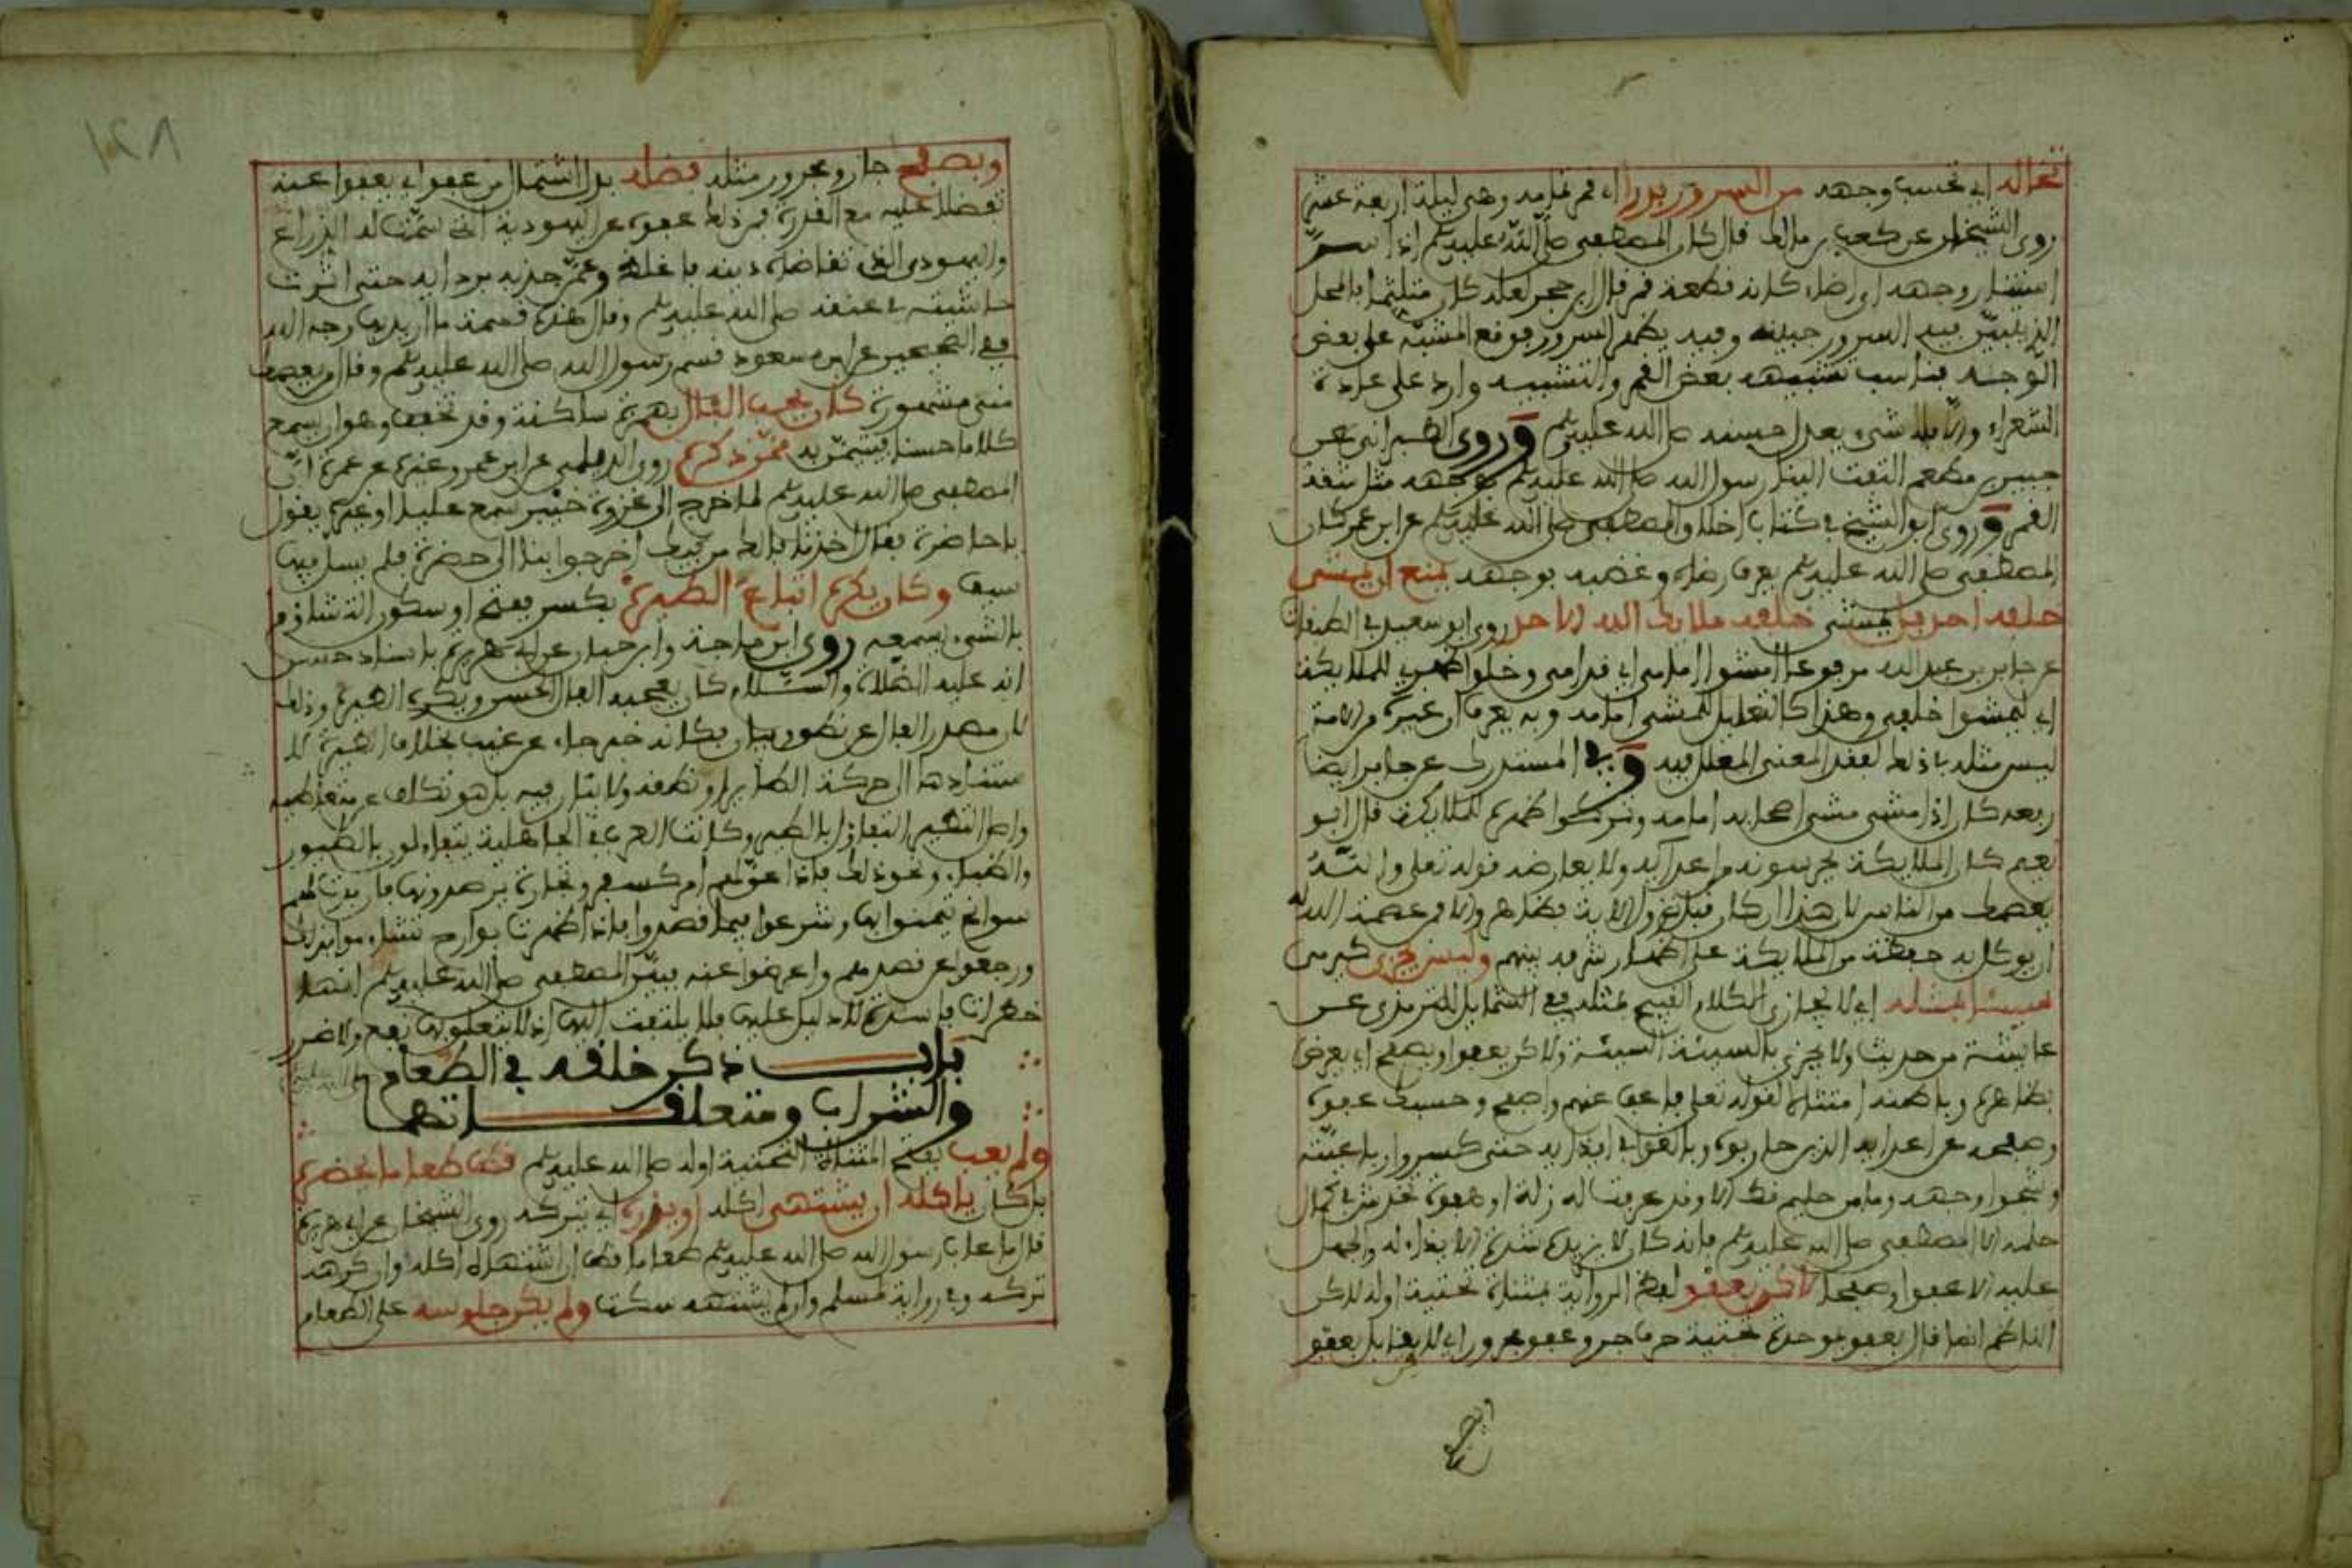 تخاله اي تحسب وجهه من السرور بدرا اي قمر تمامه وهي ليلة اربعة عشر
روى الشيخان عن كعب بن مالك قال كان المصطفى صلى الله عليه وسلم اذا سر
استنار وجهه اي اضاء كانه قطعة قمر قال ابن حجر لعله كان متلثما بالمحل
الذي يتبين فيه السرور جبينه وفيه يظهر السرور فوقع المشبه على بعض
الوجه فناسب تشبيهه ببعض القمر والتشبيه وارد على عادة
الشعراء والا فلا شيء يعدل حسنه صلى الله عليه وسلم وروى الطبراني عن
جبير بن مطعم التفت الينا رسول الله صلى الله عليه وسلم بوجهه مثل شقة
القمر وروى ابو الشيخ في كتاب اخلاق المصطفى صلى الله عليه وسلم عن ابن عمر كان
المصطفى صلى الله عليه وسلم يعرف رضاه وغضبه بوجهه يمنع ان يمشي
خلفه احد بل يمشي خلفه ملائك الله الاحد روى ابن سعد في الطبقات
عن جابر بن عبد الله مرفوعا امشوا امامي اي قدامي وخلوا ظهري للملائكة
اي ليمشوا خلفي وهذا كالتعليل للمشي امامه وبه يعرف ان غيره من الامة
ليس مثله في ذلك لفقد المعنى المعلل فيه وفي المستدرك عن جابر ايضا
رفعه كان اذا مشى مشى اصحابه امامه وتركوا ظهره للملائكة قال ابو
نعيم كان الملائكة يحرسونه من اعدائه ولا يعارضه قوله تعلى والله
يعصمك من الناس لان هذا ان كان قبل نزول الاية فظاهر والا فمن عصمة الله له
ان يوكل به حفظة من الملائكة على اظهار شرفه بينهم وليس يجزي
سيئا بمثله اي لا يجازي الكلام القبيح بمثله ففي الشمايل للترمذي عن
عايشة من حديث ولا يجزي بالسيئة السيئة ولكن يعفو او يصفح اي يعرض
بظاهره وباطنه امتثالا لقوله تعلى فاعف عنهم واصفح وحسبك عفوه
وصفحه عن اعدائه الذين حاربوه وبالغوا في ايذائه حتى كسروا رباعيته
وشجوا وجهه وما من حليم قط الا وقد عرفت له زلة او هفوة تخدش في كمال
حلمه الا المصطفى صلى الله عليه وسلم فانه كان لا يزيده شدة الايذاء له والجهل
عليه الا عفوا وصفحا لاكن يعفو لفظ الرواية بمثناة تحتية اوله لاكن
الناظم انما قال بعفو بموحدة تحتية حرف جر وعفو مجرور اي لا يقابل بعفو
وبصفح جار ومجرور مثله فضله بدل اشتمال من عفو اي يعفو عنه
تفضلا عليه مع القدرة فمن ذلك عفوه عن اليهودية التي سمت له الذراع
واليهودي الذي تقاضاه دينه فاغلظ وعمن جذبه بردايه حتى اثرت
حاشيته في عنقه صلى الله عليه وسلم وقال هذه قسمة ما اريد بها وجه الله
ففي الصحيحين عن ابن مسعود قسم رسول الله صلى الله عليه وسلم
كان يحب الفال بهمزة ساكنة وقد تخفف وهو ان يسمع
كلاما حسنا فيتيمن به ممن ذكره روى الديلمي عن ابن عمر وغيره عن عمرة ان
المصطفى صلى الله عليه وسلم لما خرج الى غزوة خيبر سمع عليا او غيره يقول
يا خاضرة فقال اخذنا فالك من فيك اخرجوا بنا الى خضرة فلم يسل فيها
سيف وكان يكره اتباع الطيرة بكسر ففتح او سكون التشاؤم
بالشيء يسمعه روى ابن ماجة وابن حبان عن ابي هريرة باسناد حسن
انه عليه الصلاة والسلام كان يعجبه الفال الحسن ويكره الطيرة وذلك
لان مصدر الفال عن نطق وبيان فكانه خبر جاء عن غيب بخلاف الطيرة
مستنادها الى حركة الطاير او نطقه ولا بيان فيه بل هو تكلف من متعاطيه
واصل التطير التفاؤل بالطير وكانت العرب في الجاهلية يتفاءلون بالطيور
والظباء ونحو ذلك فاذا عن لهم امر كسفر وتجارة يرصدونها فان بدت لهم
سوانح تيمنوا بها وشرعوا فيما قصدوا واذا ظهرت بوارح تشاءموا بذلك
ورجعوا عن قصدهم واعرضوا عنه فبين المصطفى صلى الله عليه وسلم انها
خطرات فاسدة لا دليل عليها فلا يلتفت اليها اذ لا يتعلق بها نفع ولا ضرر
باب ذكر خلقه في الطعام
والشراب ومتعلقاتهما
ولم يعب بفتح المثناة التحتية اوله صلى الله عليه وسلم قط طعاما يحضره
بل كان ياكله ان يشتهي اكله او يذره اي يتركه روى الشيخان عن ابي هريرة
قال ما عاب رسول الله صلى الله عليه وسلم طعاما قط ان اشتهاه اكله وان كرهه
تركه وفي رواية لمسلم وان لم يشتهه سكت ولم يكن جلوسه على الطعام